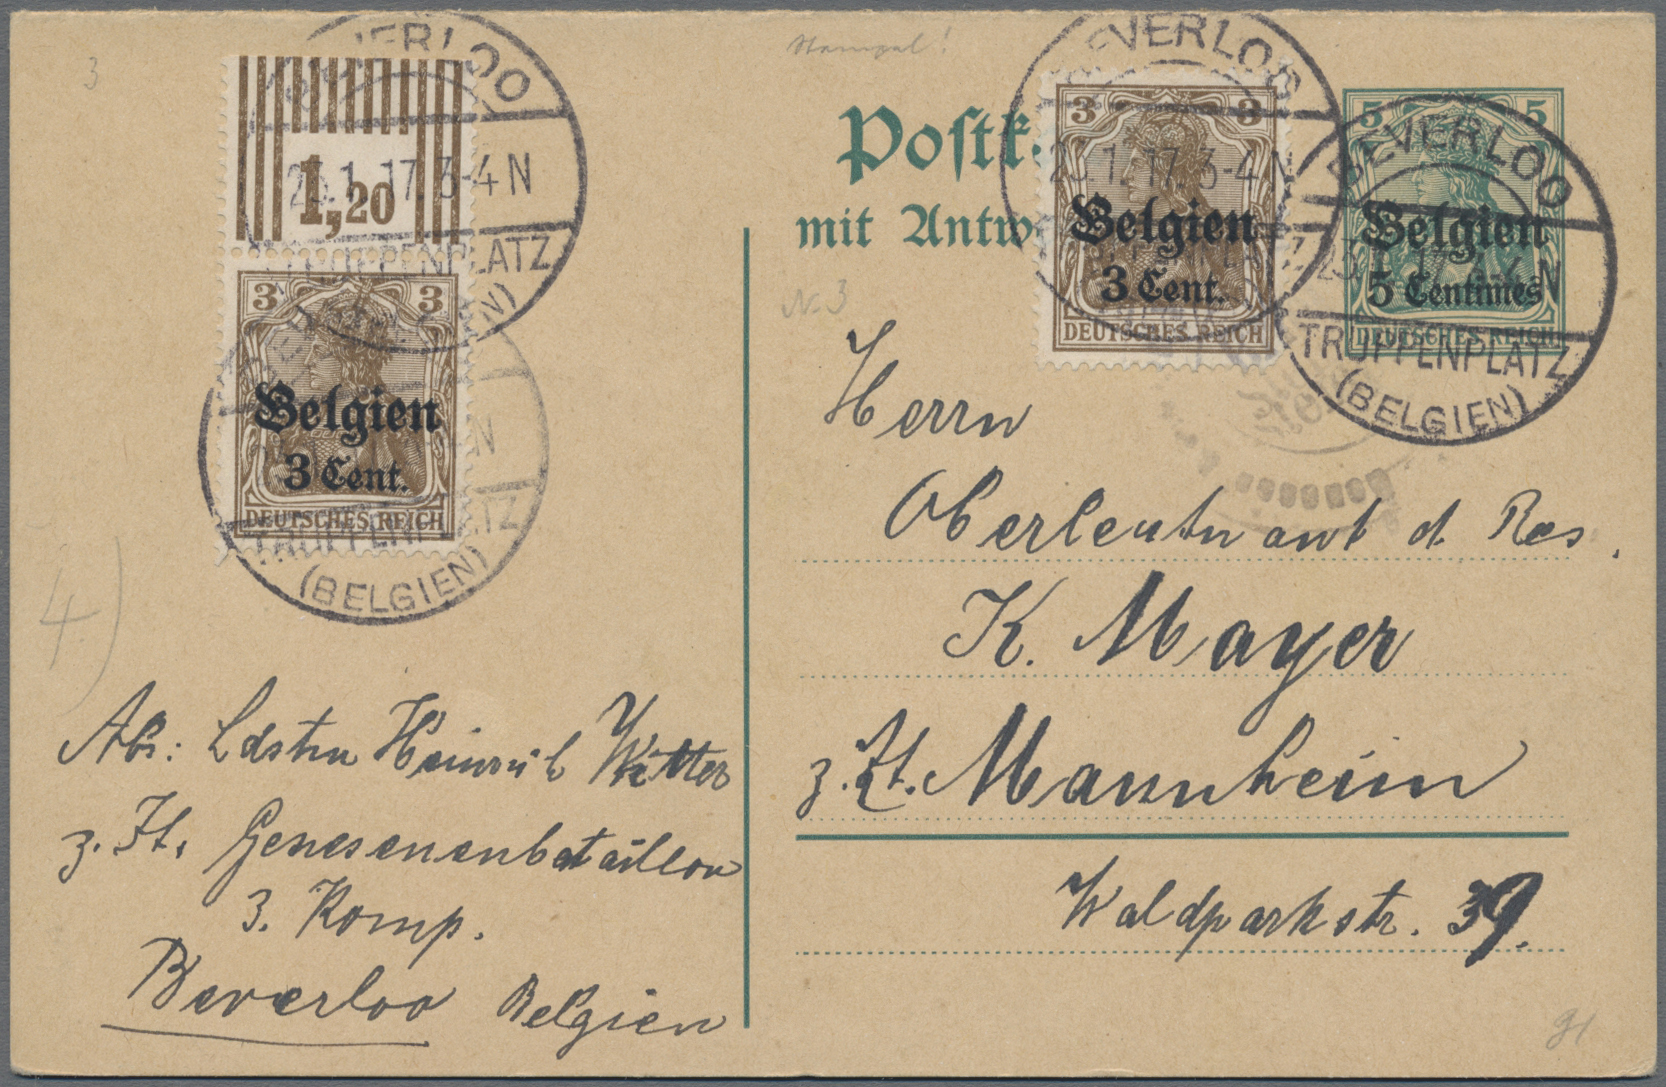 3
BEVERLOO
1,20
23.1.17.3-4N
TRUPPENPLATZ
3 3
Belgien
3 Cent.
DEUTSCHES REICH
TRUPPENPLATZ
(BELGIEN)
4.)
Abs: Ldstm Heinrich Witter
z. Zt. Genesenenbataillon
3. Komp.
Beverloo Belgien
Stempel!
Postk
mit Antw
N. 3
BEVERLOO
3 3
23.1.17.3-4N
Belgien
3 Cent.
DEUTSCHES REICH
BEVERLOO
5 5
Belgien
5 Centimes
DEUTSCHES REICH
TRUPPENPLATZ
(BELGIEN)
Herrn
Oberleutnant d. Res.
K. Mayer
z. Zt. Mannheim
Waldparkstr. 39.